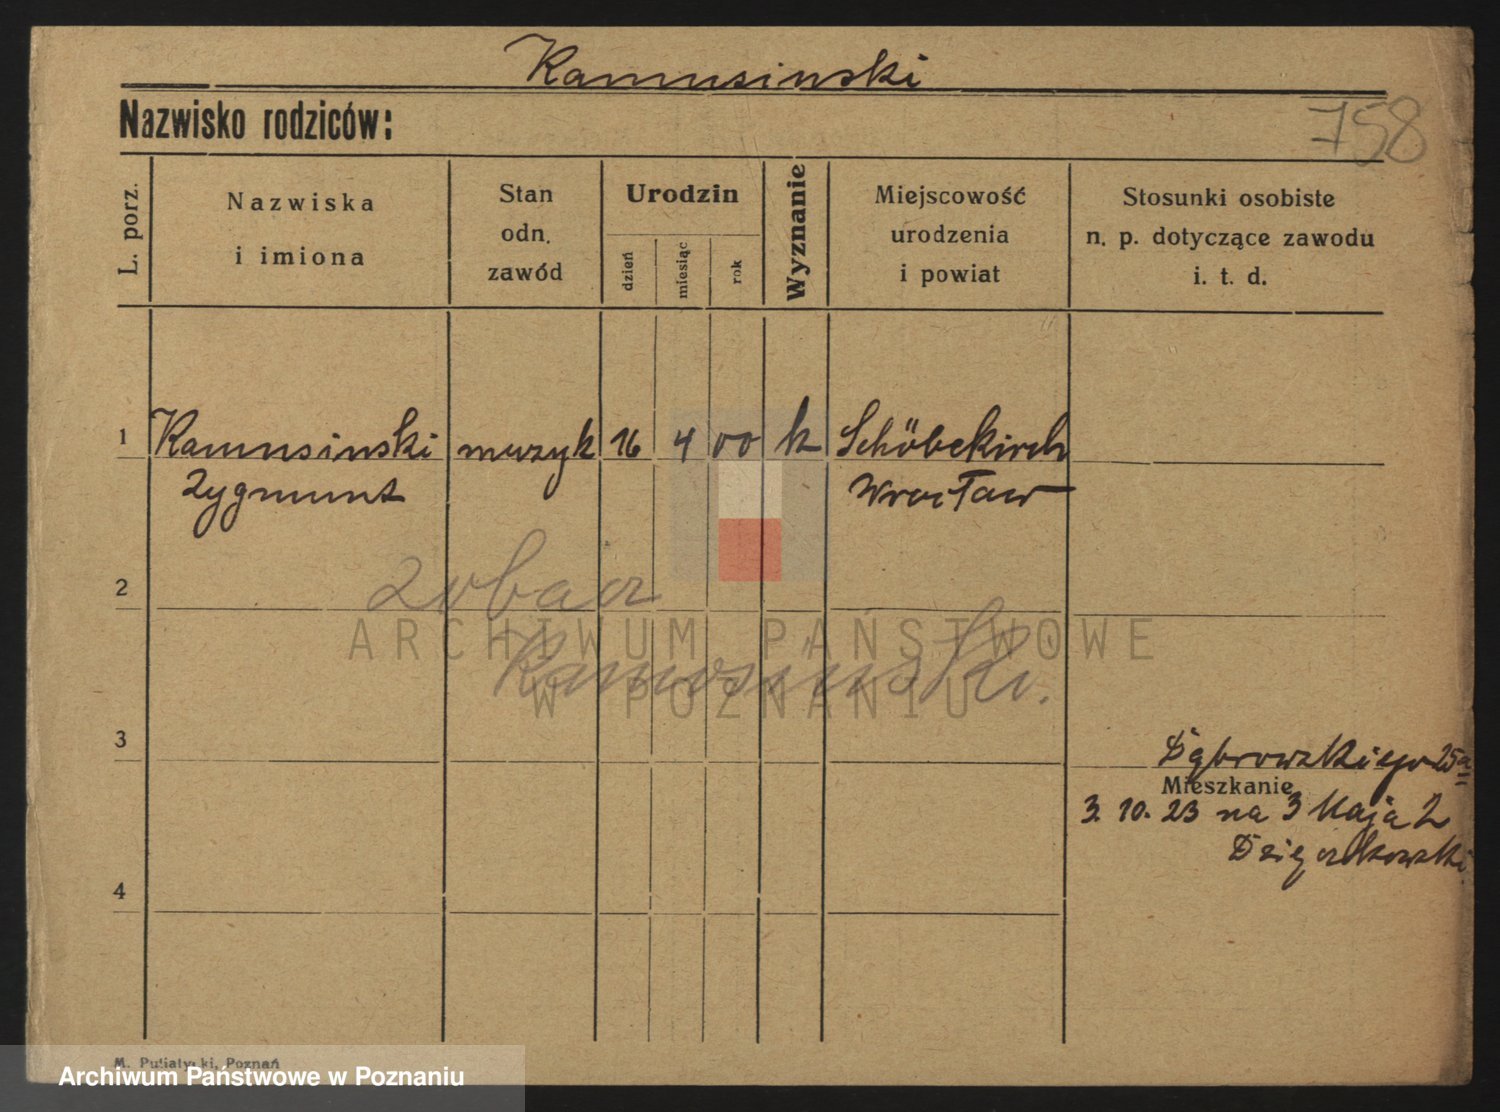 Kamusinski
Nazwisko rodziców:
758
L. porz.
Nazwiska
i imiona
Stan
odn.
zawód
Urodzin
dzień
miesiąc
rok
Wyznanie
Miejscowość
urodzenia
i powiat
Stosunki osobiste
n. p. dotyczące zawodu
i. t. d.
1 Kamusinski muzyk 16 4 00 k Schöbekirch
Zygmunt Wrocław
2 zobacz
ARCHIWUM PAŃSTWOWE
Kamosinski.
W POZNANIU
3
Dąbrowskiego 25a
Mieszkanie
3. 10. 23 na 3 Maja 2
4
M. Putiatycki, Poznań
Archiwum Państwowe w Poznaniu